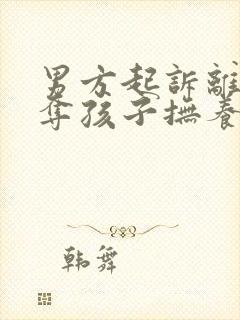 男方起訴離
奪孩子撫養
韩舞